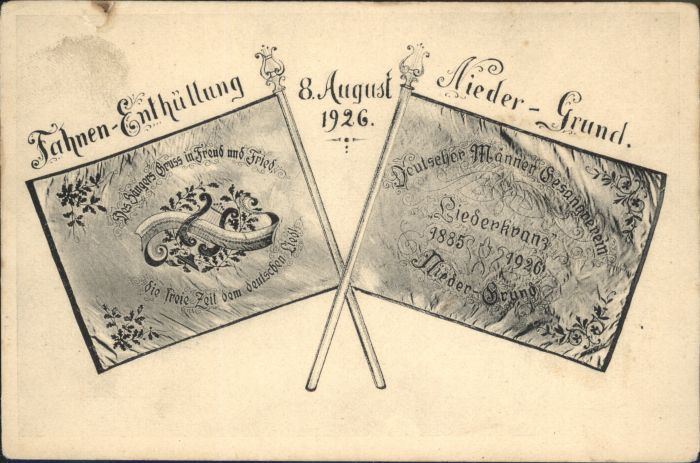 Fahnen-Enthüllung
8. August
1926.
Nieder-Grund.
Des Sängers Gruss in Freud und Fried,
die freie Zeit dem deutschen Lied!
Deutscher Männer Gesangverein
„Liederkranz"
1885 1926
Nieder-Grund